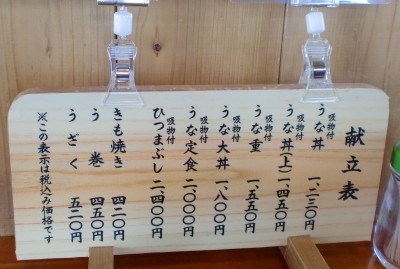 献立表
吸物付 うな丼 一、二三〇円
吸物付 うな丼(上) 一、四五〇円
吸物付 うな重 一、五五〇円
吸物付 うな大丼 一、八〇〇円
吸物付 うな定食 二、〇〇〇円
吸物付 ひつまぶし 二、四〇〇円
きも焼き 四二〇円
う巻 四五〇円
うざく 五二〇円
※この表示は税込み価格です